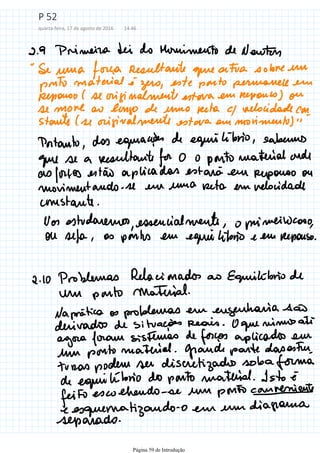 P 52
quarta-feira, 17 de agosto de 2016 14:46
2.9 Primeira Lei do Movimento de Newton
"Se uma força Resultante que actua sobre um
ponto material é zero, este ponto permanece em
Repouso (se originalmente estava em repouso) ou
se move ao longo de uma reta c/ velocidade con
stante (se originalmente estava em movimento)"
Portanto, das equações de equilíbrio, sabemos
que se a resultante for 0 o ponto material onde
as forças estão aplicadas estará em repouso ou
movimentando-se em uma reta em velocidade
constante.
Nós estudaremos, essencialmente, o primeiro caso,
ou seja, os pontos em equilíbrio e em repouso.
2.10 Problemas Relacionados ao Equilíbrio de
um ponto Material.
Na prática os problemas em engenharia são
derivados de situações Reais. O que vimos até
agora foram sistemas de forças aplicados em
um ponto material. Grande parte das estru
turas podem ser discretizadas sob a forma
de equilíbrio do ponto material. Isto é
feito escolhendo-se um ponto conveniente
e esquematizando-o em um diagrama
separado.
Página 59 de Introdução